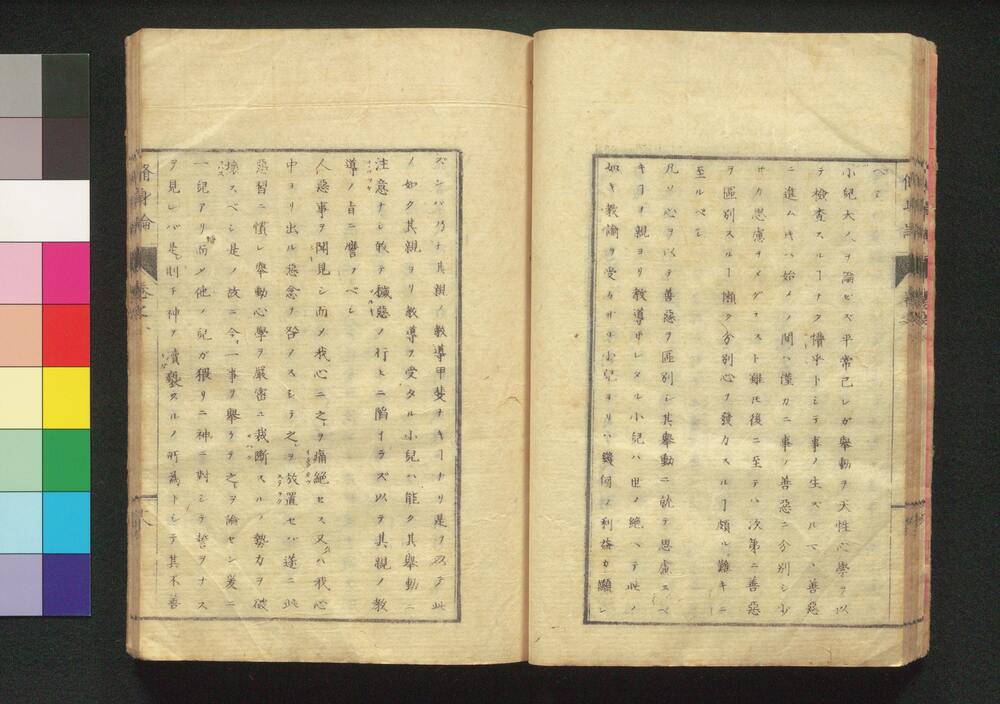 小兒大人ヲ論セズ平常己レガ擧動ヲ天性心學ヲ以
テ檢査スルーナク懵乎トシテ事ノ生ズルマヽ善惡
ニ進ムモ始メノ間ハ僅カニ事ノ善惡ニ分別シ少
サカ思慮ヲメグラスト雖ﾓ後ニ至テハ次第ニ善惡
ヲ區別スルー漸ク分別心ヲ發力スルー頗ル難キニ
至ルベシ
凡ソ心ヲ以テ善惡ヲ區別シ其擧動ニ就テ思慮スベ
キヿヲ親ヨリ教導サレタル小兒ハ世ノ絶ヘテ此ノ
如キ教諭ヲ受ケザル小兒ヨリハ幾何ノ利益カ顯レ
ズンバ乃チ其親ノ教導甲斐ナキーナリ是ヲ以テ此
ノ如ク其親ヨリ教導ヲ受タル小兒ハ能ク其擧動ニ
注意ナシ敢テ穢惡ノ行ヒニ陷イラズ以テ其親ノ教
導ノ旨ニ響フベシ
人惡事ヲ聞見シ而メ我心ニ之ヲ痛絶セス又ハ我心
中ヨリ出ル惡念ヲ咎メスシテ之ヲ放置セバ遂ニ此
惡習ニ慣レ擧動心學ヲ嚴密ニ裁斷スルノ勢力ヲ破
壞スベシ是ノ故ニ今一事ヲ擧ケテ之ヲ論セン爰ニ
一兒アリ而メ他ノ兒ガ猥リニ神ニ對シテ誓ヲナス
ヲ見レバ是則チ神ヲ瀆褻スルノ所爲トシテ其不善
脩身論 卷之